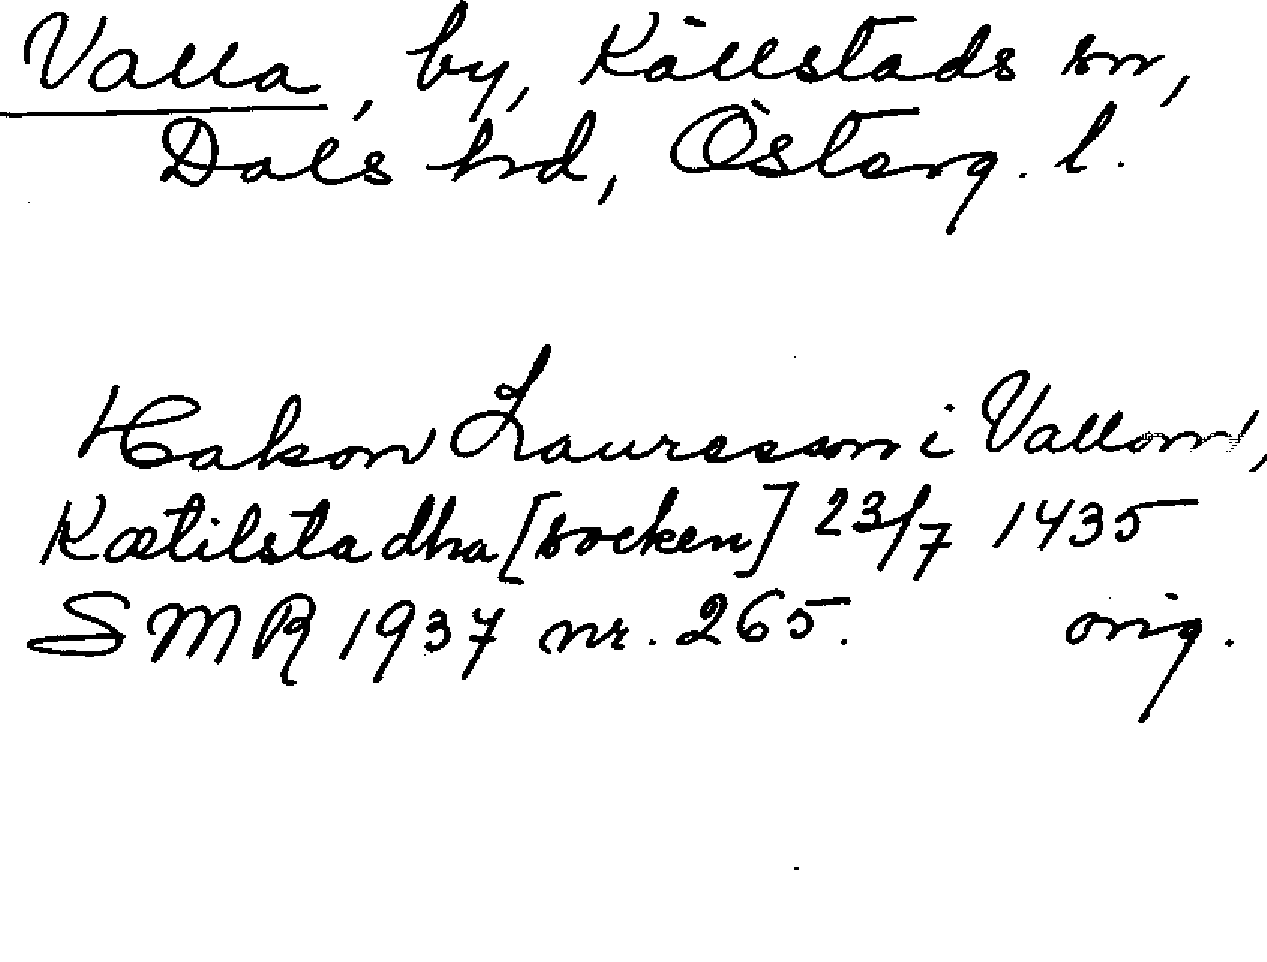 Valla, by, Källstads sn,
Dals hrd, Österg. l.
Hakon Lauresson i Vallom,
Kætilstadha [socken] 23/7 1435
SMR 1937 nr. 265. orig.